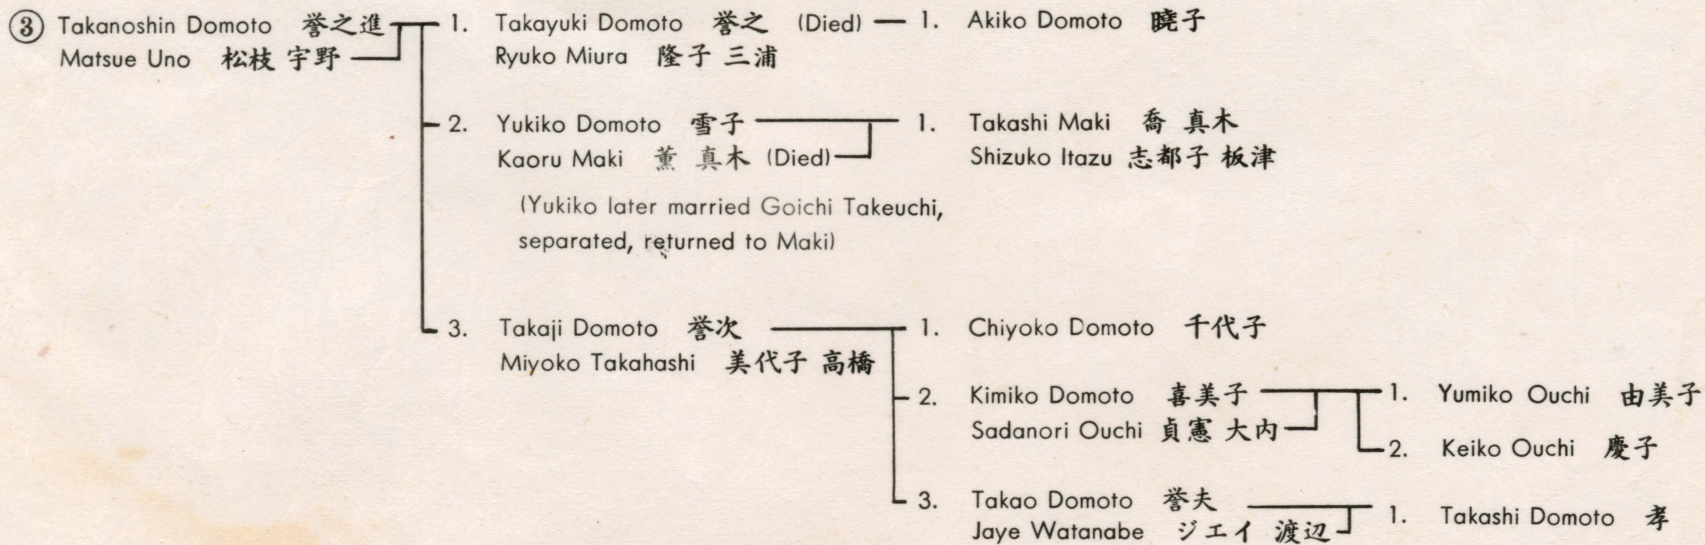 ③ Takanoshin Domoto 誉之進
Matsue Uno 松枝 宇野
1. Takayuki Domoto 誉之 (Died)
Ryuko Miura 隆子 三浦
1. Akiko Domoto 暁子
2. Yukiko Domoto 雪子
Kaoru Maki 薫 真木 (Died)
(Yukiko later married Goichi Takeuchi,
separated, returned to Maki)
1. Takashi Maki 喬 真木
Shizuko Itazu 志都子 板津
3. Takaji Domoto 誉次
Miyoko Takahashi 美代子 高橋
1. Chiyoko Domoto 千代子
2. Kimiko Domoto 喜美子
Sadanori Ouchi 貞憲 大内
1. Yumiko Ouchi 由美子
2. Keiko Ouchi 慶子
3. Takao Domoto 誉夫
Jaye Watanabe ジエイ 渡辺
1. Takashi Domoto 孝